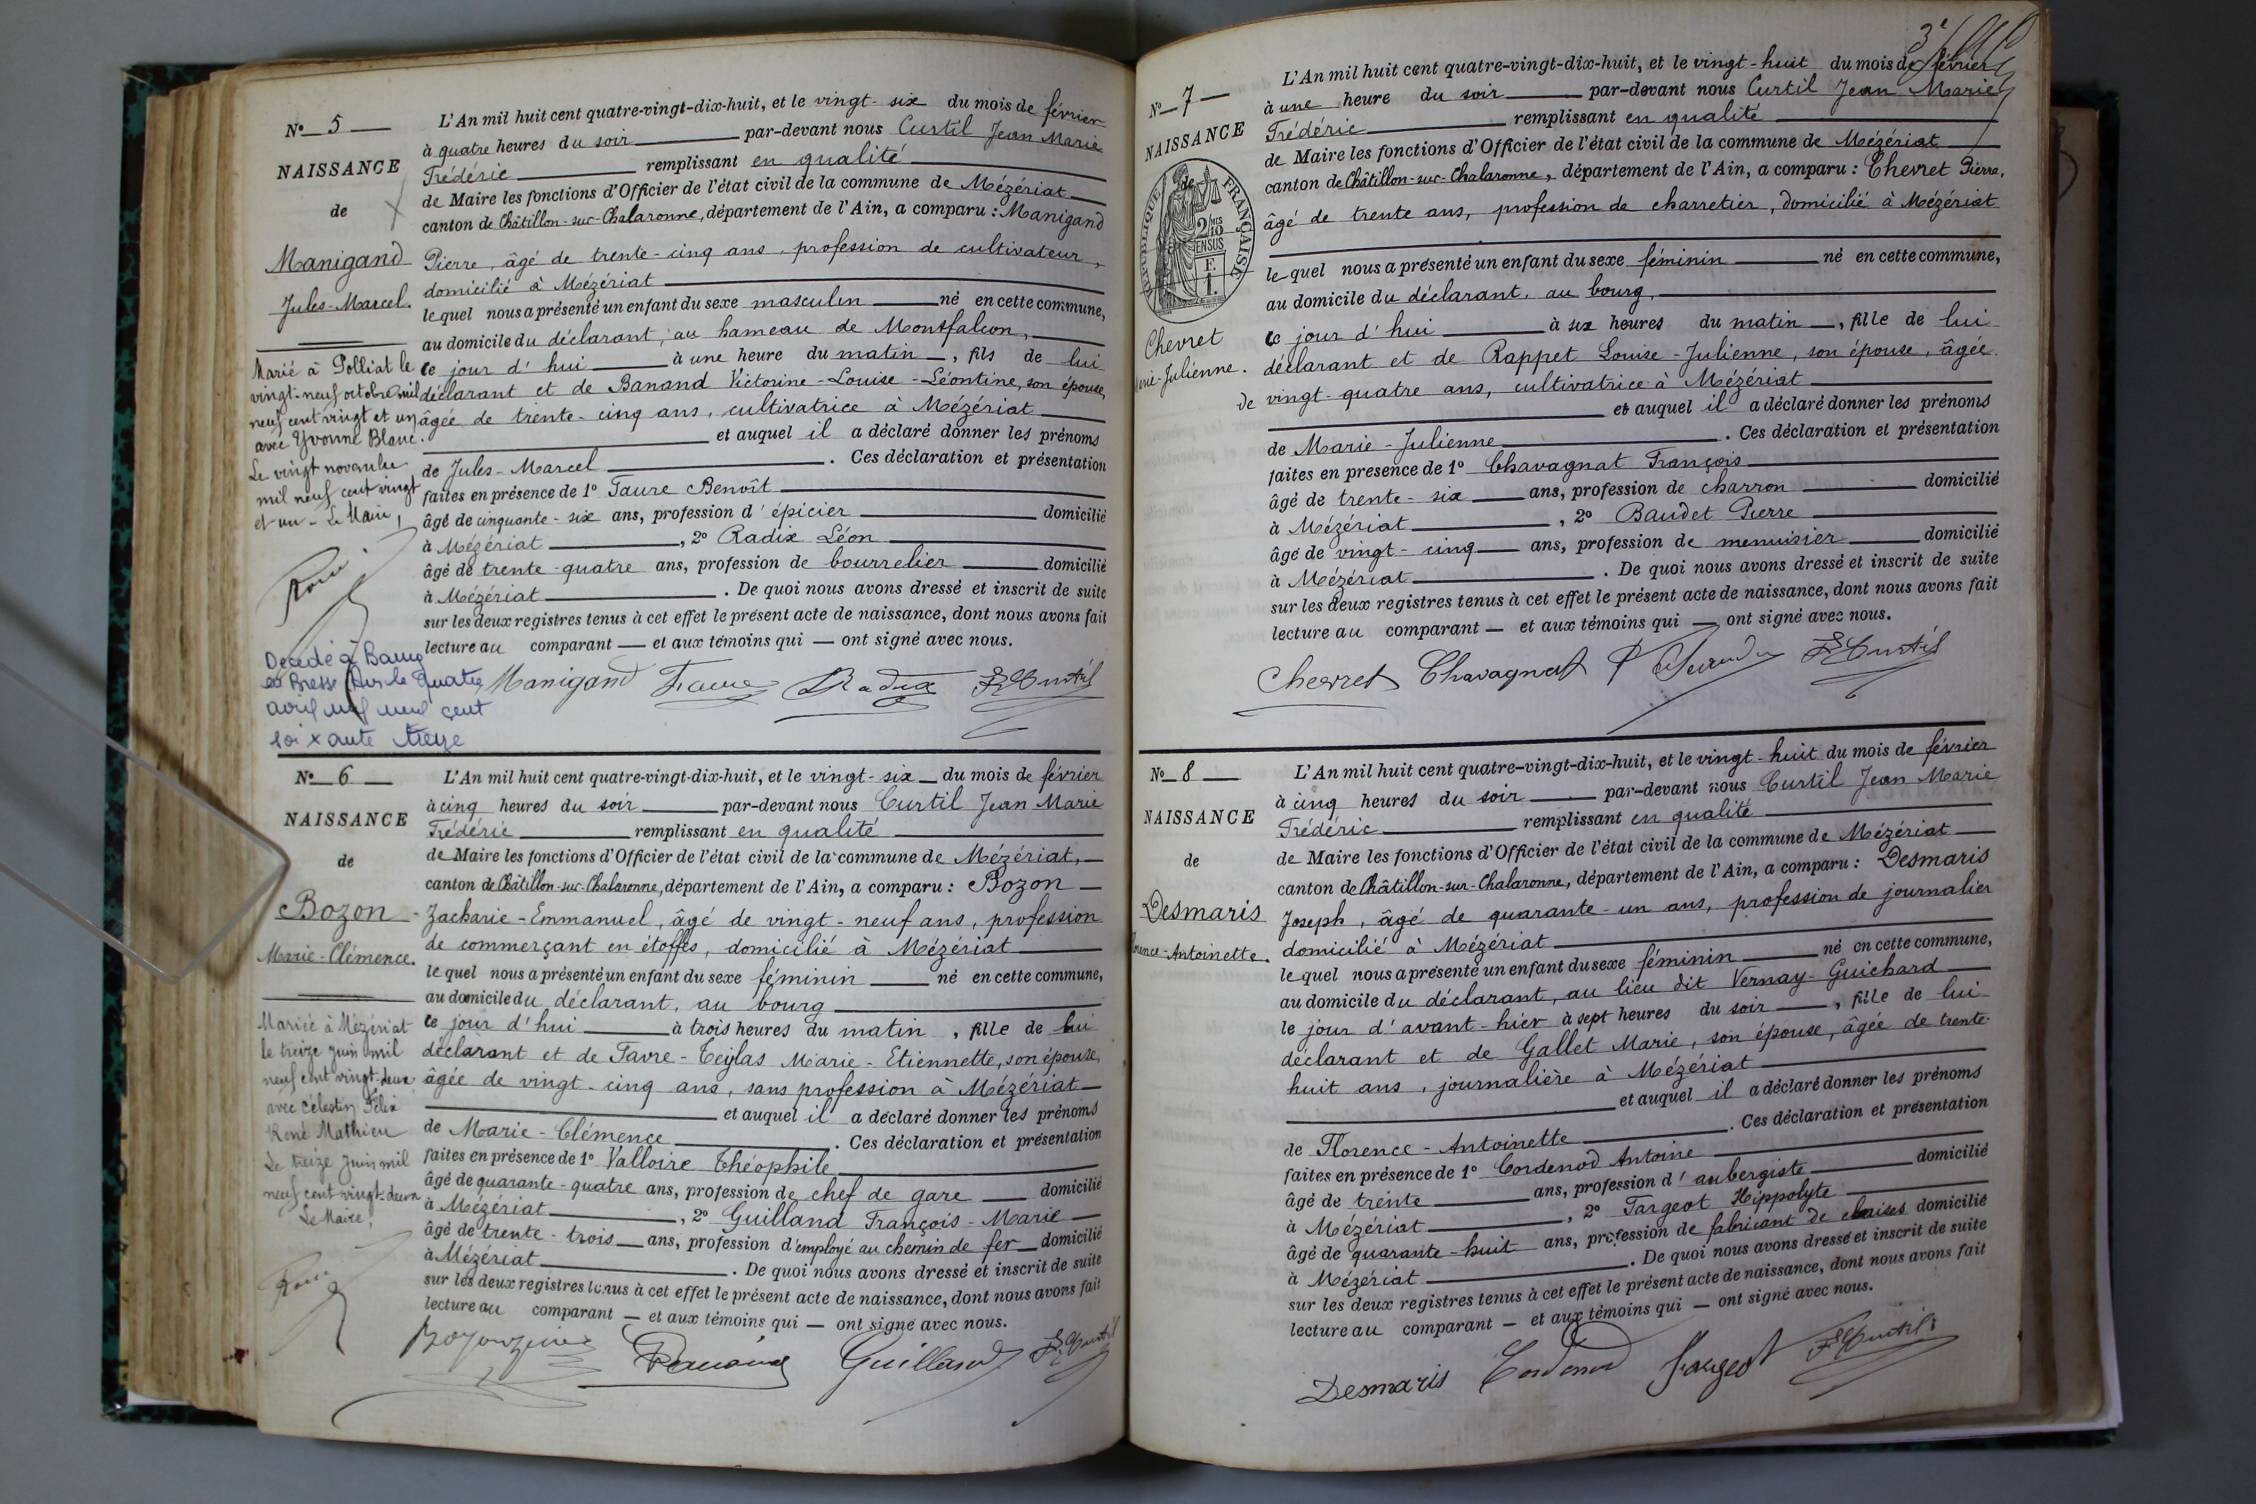 N° 5
NAISSANCE
de
Manigand
Jules-Marcel.
Marié à Polliat le
vingt-neuf octobre mil
neuf cent vingt et un
avec Yvonne Blanc.
Le vingt novembre
mil neuf cent vingt
et un - Le Maire,
Décédé à Bourg
en Bresse Ain le Quatre
avril mil neuf cent
soixante treize
L'An mil huit cent quatre-vingt-dix-huit, et le vingt-six du mois de février
à quatre heures du soir par-devant nous Curtil Jean Marie
Frédéric remplissant en qualité
de Maire les fonctions d'Officier de l'état civil de la commune de Mézériat
canton de Châtillon-sur-Chalaronne, département de l'Ain, a comparu : Manigand
Pierre, âgé de trente-cinq ans, profession de cultivateur,
domicilié à Mézériat
lequel nous a présenté un enfant du sexe masculin né en cette commune,
au domicile du déclarant, au hameau de Montfalcon,
ce jour d'hui à une heure du matin, fils de lui
déclarant et de Banand Victorine-Louise-Léontine, son épouse,
âgée de trente-cinq ans, cultivatrice à Mézériat
et auquel il a déclaré donner les prénoms
de Jules-Marcel. Ces déclaration et présentation
faites en présence de 1° Faure Benoît
âgé de cinquante-six ans, profession d'épicier domicilié
à Mézériat, 2° Radix Léon
âgé de trente-quatre ans, profession de bourrelier domicilié
à Mézériat. De quoi nous avons dressé et inscrit de suite
sur les deux registres tenus à cet effet le présent acte de naissance, dont nous avons fait
lecture au comparant — et aux témoins qui — ont signé avec nous.
Manigand Faure Radix F Curtil
N° 6
NAISSANCE
de
Bozon
Marie-Clémence.
Mariée à Mézériat
le treize juin mil
neuf cent vingt-deux
avec Célestin Félix
René Mathieu
Le treize juin mil
neuf cent vingt-deux
Le Maire,
L'An mil huit cent quatre-vingt-dix-huit, et le vingt-six du mois de février
à cinq heures du soir par-devant nous Curtil Jean Marie
Frédéric remplissant en qualité
de Maire les fonctions d'Officier de l'état civil de la commune de Mézériat,
canton de Châtillon-sur-Chalaronne, département de l'Ain, a comparu : Bozon
Zacharie-Emmanuel, âgé de vingt-neuf ans, profession
de commerçant en étoffes, domicilié à Mézériat
lequel nous a présenté un enfant du sexe féminin né en cette commune,
au domicile du déclarant, au bourg
ce jour d'hui à trois heures du matin, fille de lui
déclarant et de Favre-Teylas Marie-Etiennette, son épouse,
âgée de vingt-cinq ans, sans profession à Mézériat
et auquel il a déclaré donner les prénoms
de Marie-Clémence. Ces déclaration et présentation
faites en présence de 1° Valloire Théophile
âgé de quarante-quatre ans, profession de chef de gare domicilié
à Mézériat, 2° Guilland François-Marie
âgé de trente-trois ans, profession d'employé au chemin de fer domicilié
à Mézériat. De quoi nous avons dressé et inscrit de suite
sur les deux registres tenus à cet effet le présent acte de naissance, dont nous avons fait
lecture au comparant — et aux témoins qui — ont signé avec nous.
Guilland F Curtil
3e
N° 7
NAISSANCE
de
RÉPUBLIQUE FRANÇAISE
2/10
EN SUS
F.
1.
Chevret
Marie-Julienne.
L'An mil huit cent quatre-vingt-dix-huit, et le vingt-huit du mois de février
à une heure du soir par-devant nous Curtil Jean Marie
Frédéric remplissant en qualité
de Maire les fonctions d'Officier de l'état civil de la commune de Mézériat
canton de Châtillon-sur-Chalaronne, département de l'Ain, a comparu : Chevret Pierre,
âgé de trente ans, profession de charretier, domicilié à Mézériat
lequel nous a présenté un enfant du sexe féminin né en cette commune,
au domicile du déclarant, au bourg,
ce jour d'hui à six heures du matin, fille de lui
déclarant et de Rappet Louise-Julienne, son épouse, âgée
de vingt-quatre ans, cultivatrice à Mézériat
et auquel il a déclaré donner les prénoms
de Marie-Julienne. Ces déclaration et présentation
faites en présence de 1° Chavagnat François
âgé de trente-six ans, profession de charron domicilié
à Mézériat, 2° Baudet Pierre
âgé de vingt-cinq ans, profession de menuisier domicilié
à Mézériat. De quoi nous avons dressé et inscrit de suite
sur les deux registres tenus à cet effet le présent acte de naissance, dont nous avons fait
lecture au comparant — et aux témoins qui — ont signé avec nous.
Chevret Chavagnat F Curtil
N° 8
NAISSANCE
de
Desmaris
Florence-Antoinette.
L'An mil huit cent quatre-vingt-dix-huit, et le vingt-huit du mois de février
à cinq heures du soir par-devant nous Curtil Jean Marie
Frédéric remplissant en qualité
de Maire les fonctions d'Officier de l'état civil de la commune de Mézériat
canton de Châtillon-sur-Chalaronne, département de l'Ain, a comparu : Desmaris
Joseph, âgé de quarante-un ans, profession de journalier
domicilié à Mézériat
lequel nous a présenté un enfant du sexe féminin né en cette commune,
au domicile du déclarant, au lieu dit Vernay-Guichard
le jour d'avant-hier à sept heures du soir, fille de lui
déclarant et de Gallet Marie, son épouse, âgée de trente-
huit ans, journalière à Mézériat
et auquel il a déclaré donner les prénoms
de Florence-Antoinette. Ces déclaration et présentation
faites en présence de 1° Cordenod Antoine
âgé de trente ans, profession d'aubergiste domicilié
à Mézériat, 2° Fargeot Hippolyte
âgé de quarante-huit ans, profession de fabricant de chaises domicilié
à Mézériat. De quoi nous avons dressé et inscrit de suite
sur les deux registres tenus à cet effet le présent acte de naissance, dont nous avons fait
lecture au comparant — et aux témoins qui — ont signé avec nous.
Desmaris Cordenod Fargeot F Curtil